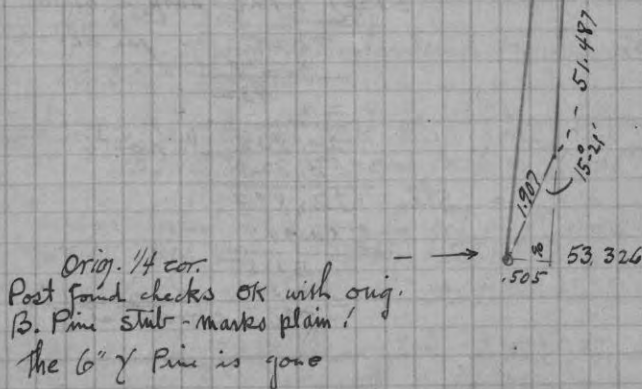 51.487
15°-21'
1.907
.505
53,326
Orig. 1/4 cor.
Post found checks OK with orig.
B. Pine stub - marks plain!
the 6" Y Pine is gone